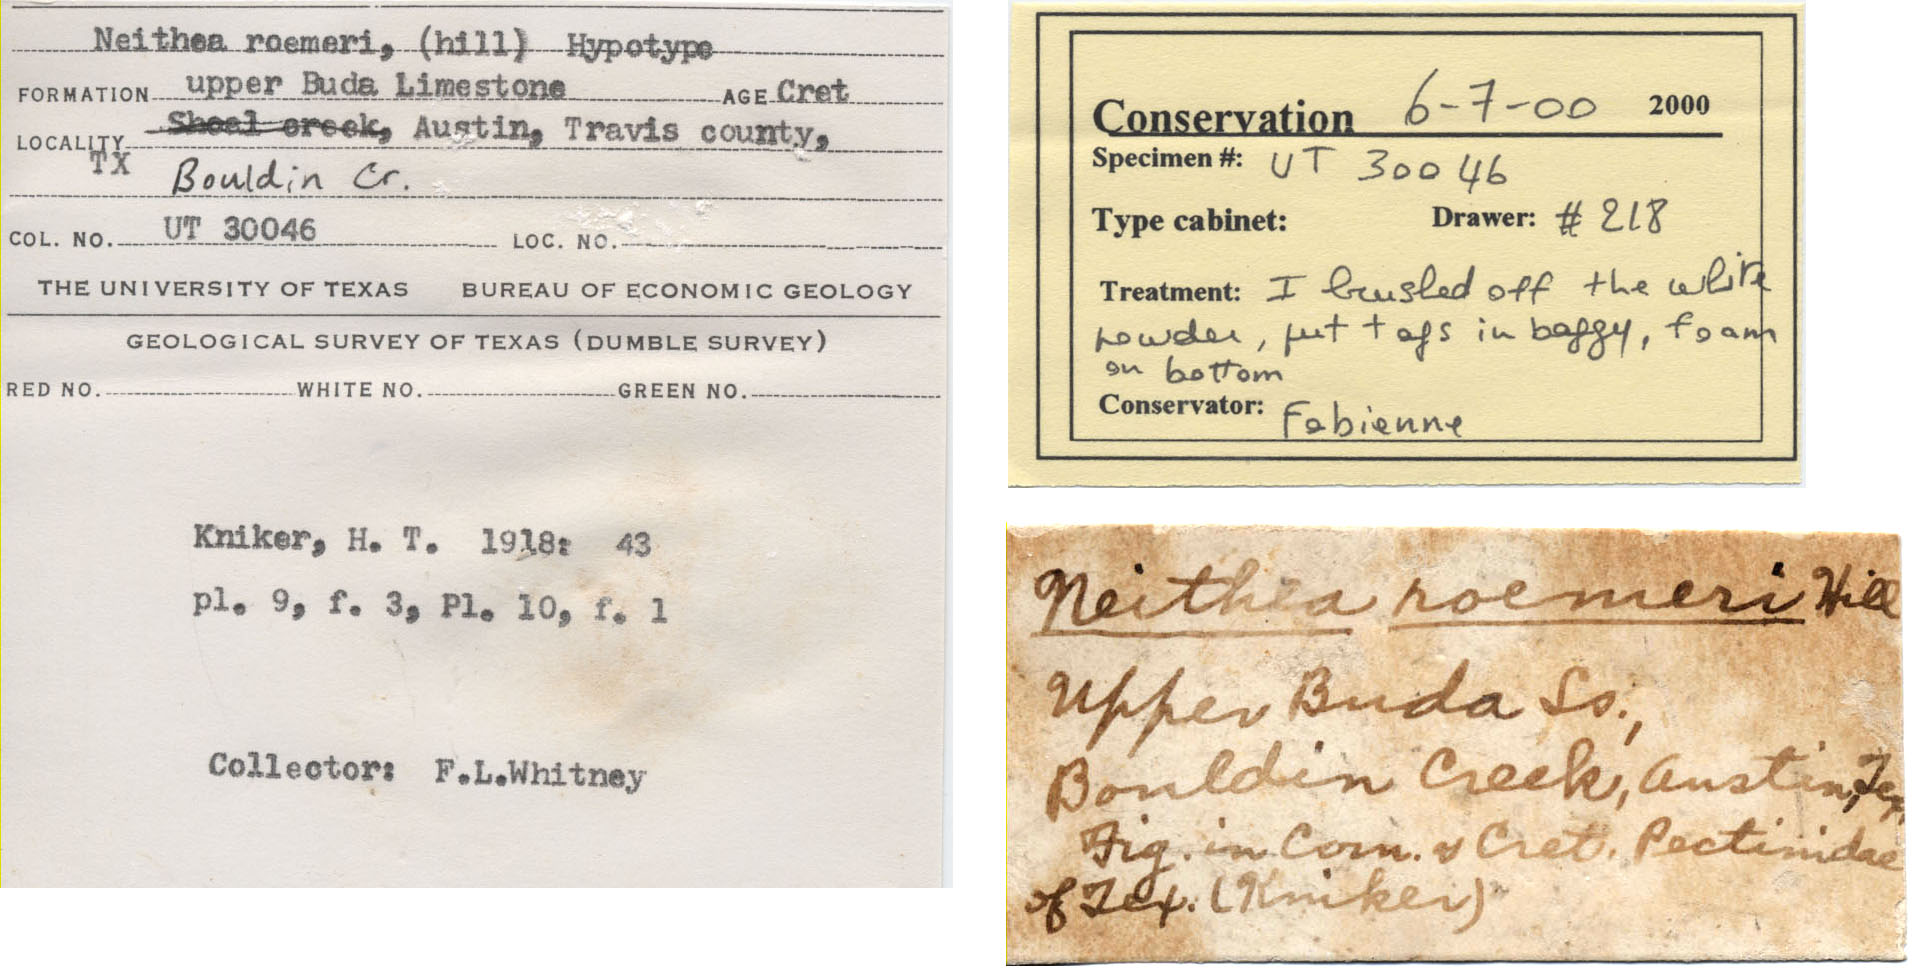 Neithea roemeri, (hill) Hypotype
FORMATION upper Buda Limestone AGE Cret
LOCALITY Shoal creek, Austin, Travis county,
TX Bouldin Cr.
COL. NO. UT 30046 LOC. NO.
THE UNIVERSITY OF TEXAS BUREAU OF ECONOMIC GEOLOGY
GEOLOGICAL SURVEY OF TEXAS (DUMBLE SURVEY)
RED NO. WHITE NO. GREEN NO.
Kniker, H. T. 1918: 43
pl. 9, f. 3, Pl. 10, f. 1
Collector: F.L.Whitney
Conservation 6-7-00 2000
Specimen #: UT 30046
Type cabinet: Drawer: # 218
Treatment: I brushed off the white
powder, put tags in baggy, foam
on bottom
Conservator: Fabienne
Neithea roemeri Hill
Upper Buda Ls.,
Bouldin Creek, Austin, Tex.
Fig. in Com. & Cret. Pectinidae
of Tex. (Kniker)